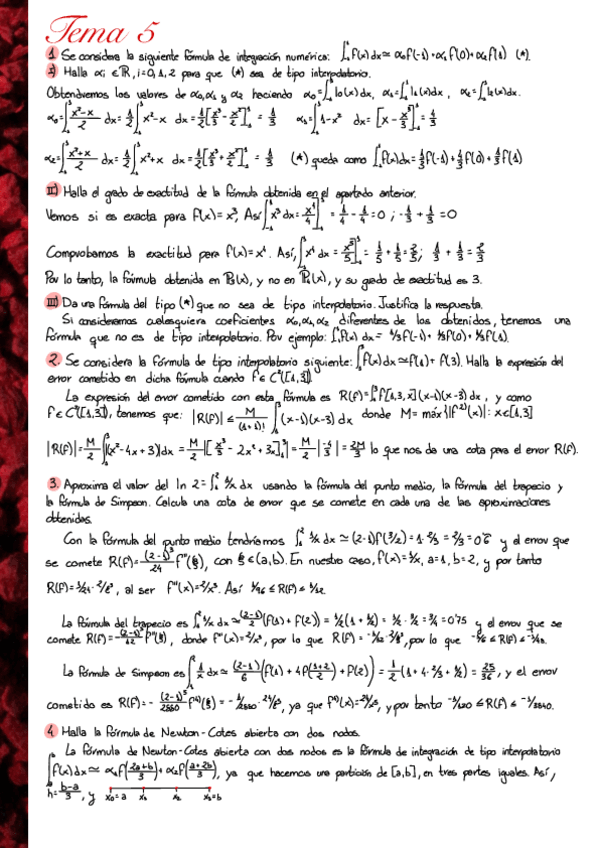 Tema 5
1. Se considera la siguiente fórmula de integración numérica: ∫₋₁¹ f(x)dx ≃ α₀f(-1)+α₁f(0)+α₂f(1) (*).
I) Halla αᵢ ∈ ℝ, i=0,1,2 para que (*) sea de tipo interpolatorio.
Obtendremos los valores de α₀, α₁ y α₂ haciendo α₀=∫₋₁¹ l₀(x)dx, α₁=∫₋₁¹ l₁(x)dx, α₂=∫₋₁¹ l₂(x)dx.
α₀=∫₋₁¹ (x²-x)/2 dx = 1/2 ∫₋₁¹ x²-x dx = 1/2 [x³/3 - x²/2]₋₁¹ = 1/3 α₁=∫₋₁¹ 1-x² dx = [x - x³/3]₋₁¹ = 4/3
α₂=∫₋₁¹ (x²+x)/2 dx = 1/2 ∫₋₁¹ x²+x dx = 1/2 [x³/3 + x²/2]₋₁¹ = 1/3 (*) queda como ∫₋₁¹ f(x)dx = 1/3 f(-1) + 4/3 f(0) + 1/3 f(1)
II) Halla el grado de exactitud de la fórmula obtenida en el apartado anterior.
Vemos si es exacta para f(x)=x³, Así ∫₋₁¹ x³ dx = x⁴/4 ]₋₁¹ = 1/4 - 1/4 = 0 ; -1/3 + 1/3 = 0
Comprobamos la exactitud para f(x)=x⁴. Así, ∫₋₁¹ x⁴ dx = x⁵/5 ]₋₁¹ = 1/5 + 1/5 = 2/5; 1/3 + 1/3 = 2/3
Por lo tanto, la fórmula obtenida en ℙ₃(x), y no en ℙ₄(x), y su grado de exactitud es 3.
III) Da una fórmula del tipo (*) que no sea de tipo interpolatorio. Justifica la respuesta.
Si consideramos cualesquiera coeficientes α₀, α₁, α₂ diferentes de los obtenidos, tenemos una
fórmula que no es de tipo interpolatorio. Por ejemplo: ∫₋₁¹ f(x) dx =
2. Se considera la fórmula de tipo interpolatorio siguiente: ∫₁³ f(x)dx ≃ f(1)+f(3). Halla la expresión del
error cometido en dicha fórmula cuando f ∈ C²([1,3])
La expresión del error cometido con esta fórmula es R(f)=∫₁³ f[1,3,x](x-1)(x-3)dx, y como
f ∈ C²([1,3]), tenemos que: |R(f)| ≤ M/(1+1)! ∫₁³ (x-1)(x-3) dx donde M= máx{|f⁽²⁾(x)|: x∈[1,3]
|R(f)| = M/2 |∫₁³ (x²-4x+3)dx = M/2 |[x³/3 - 2x² + 3x]₁³| = M/2 |-4/3| = 2M/3 lo que nos da una cota para el error R(f).
3. Aproxima el valor del ln 2=∫₁² 1/x dx usando la fórmula del punto medio, la fórmula del trapecio y
la fórmula de Simpson. Calcula una cota de error que se comete en cada una de las aproximaciones
obtenidas.
Con la fórmula del punto medio tendríamos ∫₁² 1/x dx ≃ (2-1)f(3/2) = 1·2/3 = 2/3 = 0'6 y el error que
se comete R(f)= (2-1)³/24 f''(ξ), con ξ∈(a,b). En nuestro caso, f(x)=1/x, a=1, b=2, y por tanto
R(f)= 1/24 · 2/ξ³, al ser f''(x)=2/x³. Así 1/96 ≤ R(f) ≤ 1/12.
La fórmula del trapecio es ∫₁² 1/x dx ≃ (2-1)/2 (f(1) + f(2)) = 1/2(1 + 1/2) = 1/2 · 3/2 = 3/4 = 0'75 y el error que se
comete R(f)=-(2-1)³/12 f''(ξ), donde f''(x)=2/x³, por lo que R(f) = -1/12 · 2/ξ³, por lo que -1/6 ≤ R(f) ≤ -1/48.
La fórmula de Simpson es ∫₁² 1/x dx ≃ (2-1)/6 (f(1) + 4f((1+2)/2) + f(2)) = 1/6 (1 + 4·2/3 + 1/2) = 25/36, y el error
cometido es R(f) = - (2-1)⁵/2880 f⁽⁴⁾(ξ) = - 1/2880 · 24/ξ⁵, ya que f⁽⁴⁾(x)=24/x⁵, y por tanto -1/120 ≤ R(f) ≤ -1/3840.
4 Halla la fórmula de Newton-Cotes abierta con dos nodos.
La fórmula de Newton-Cotes abierta con dos nodos es la fórmula de integración de tipo interpolatorio
∫ f(x)dx ≃ α₁f((2a+b)/3) + α₂f((a+2b)/3), ya que hacemos una partición de [a,b], en tres partes iguales. Así,
h= (b-a)/3, y x₀=a x₁ x₂ x₃=b